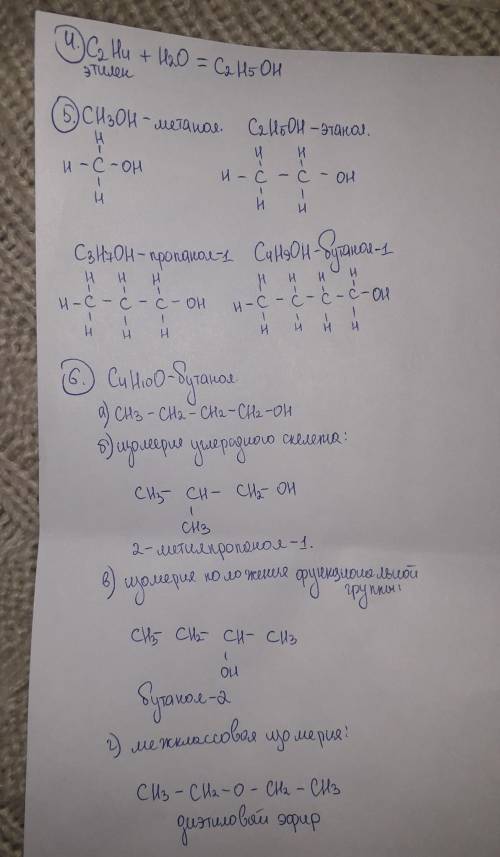 4. C2H4 + H2O = C2H5OH
этилен
5. CH3OH - метанол. C2H5OH - этанол.
H H H
H - C - OH H - C - C - OH
H H H
C3H7OH - пропанол-1 C4H9OH - бутанол-1
H H H H H H H
H - C - C - C - OH H - C - C - C - C - OH
H H H H H H H
6. C4H10O - бутанол
а) CH3 - CH2 - CH2 - CH2 - OH
б) изомерия углерадного скелета:
CH3 - CH - CH2 - OH
CH3
2-метилпропанол-1.
в) изомерия положения функциональной
группы:
CH3 - CH2 - CH - CH3
OH
бутанол-2
г) межклассовая изомерия:
CH3 - CH2 - O - CH2 - CH3
диэтиловый эфир